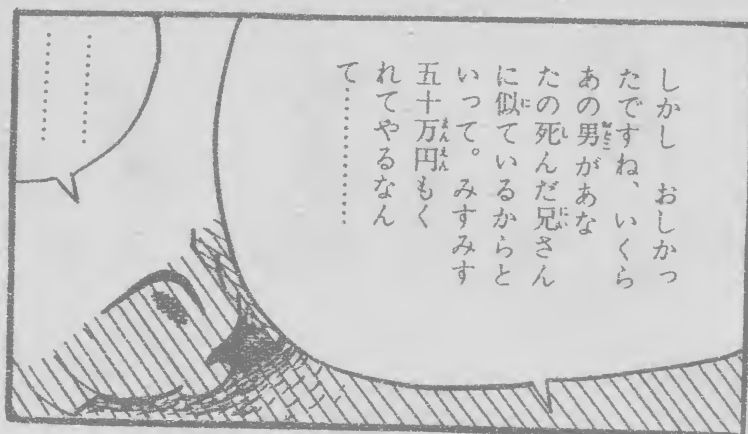 しかし　おしかっ
たですね、いくら
あの男があな
たの死んだ兄さん
に似ているからと
いって。みすみす
五十万円もく
れてやるなん
て…………
…………
…………